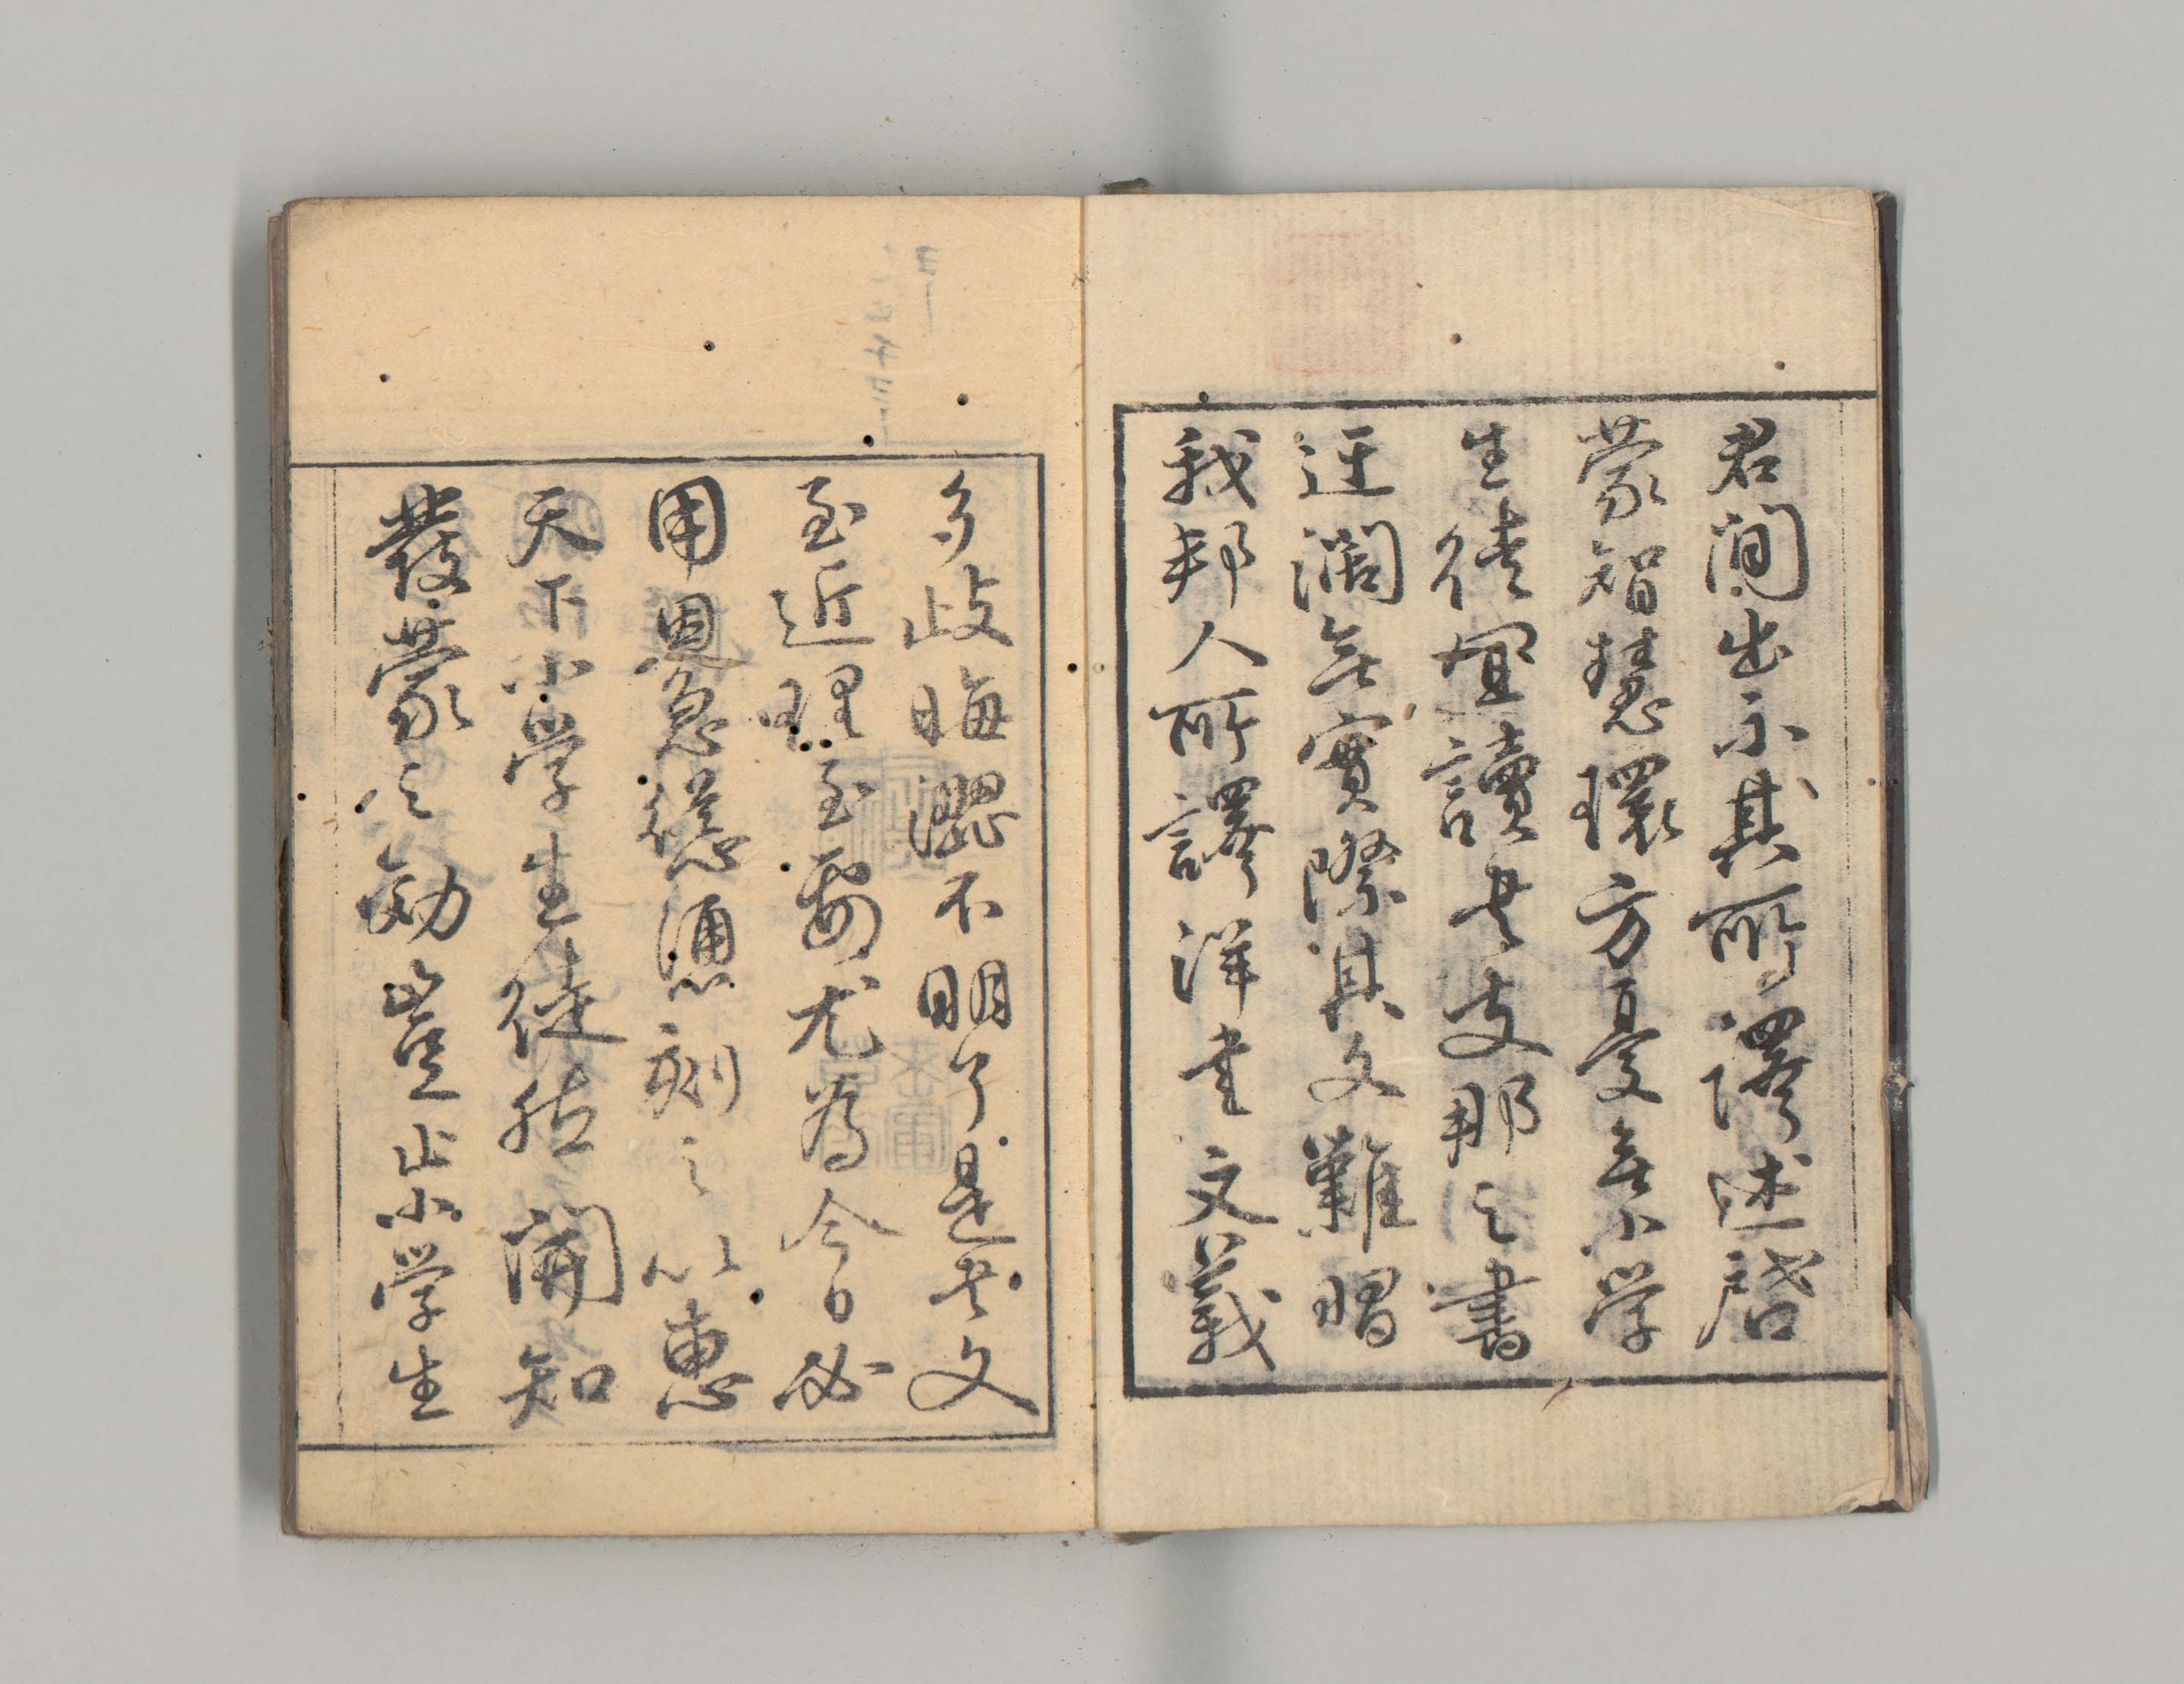 君間出示其所譯述啓
蒙智慧環方憂無小学
生徒宜讀者支那之書
迂濶無實際其文難習
我邦人所譯洋書文義
多岐晦澀不明了是其文
至近理至要尤為今日必
用因急慫慂刻之以惠
天下小学生徒德開知
發蒙之効豈止小学生